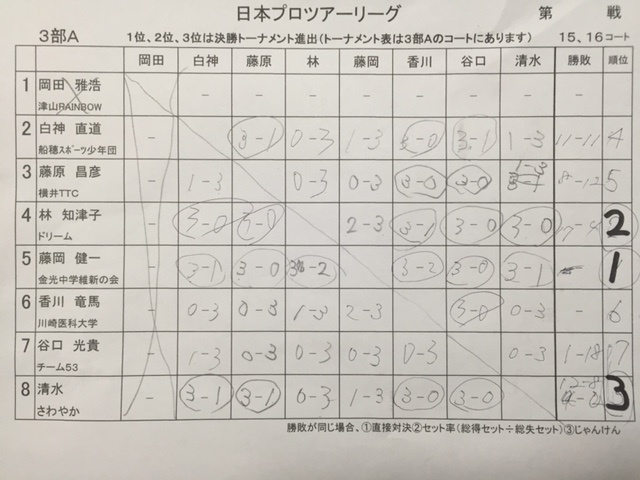 日本プロツアーリーグ 第 戦
3部A 1位、2位、3位は決勝トーナメント進出(トーナメント表は3部Aのコートにあります) 15、16コート
岡田 白神 藤原 林 藤岡 香川 谷口 清水 勝敗 順位
1 岡田 雅浩 - - - - - - - -
津山RAINBOW
2 白神 直道 - 3-1 0-3 1-3 3-0 3-1 1-3 11-11 4
船穂スポーツ少年団
3 藤原 昌彦 - 1-3 0-3 0-3 3-0 3-0 1-3 8-12 5
横井TTC
4 林 知津子 - 3-0 3-0 2-3 3-1 3-0 3-0 2
ドリーム
5 藤岡 健一 - 3-1 3-0 3-2 3-2 3-0 3-1 1
金光中学維新の会
6 香川 竜馬 - 0-3 0-3 1-3 2-3 3-0 0-3 - 6
川崎医科大学
7 谷口 光貴 - 1-3 0-3 0-3 0-3 0-3 0-3 1-18 7
チーム53
8 清水 - 3-1 3-1 0-3 1-3 3-0 3-0 12-8 3
さわやか
勝敗が同じ場合、①直接対決②セット率(総得セット÷総失セット)③じゃんけん